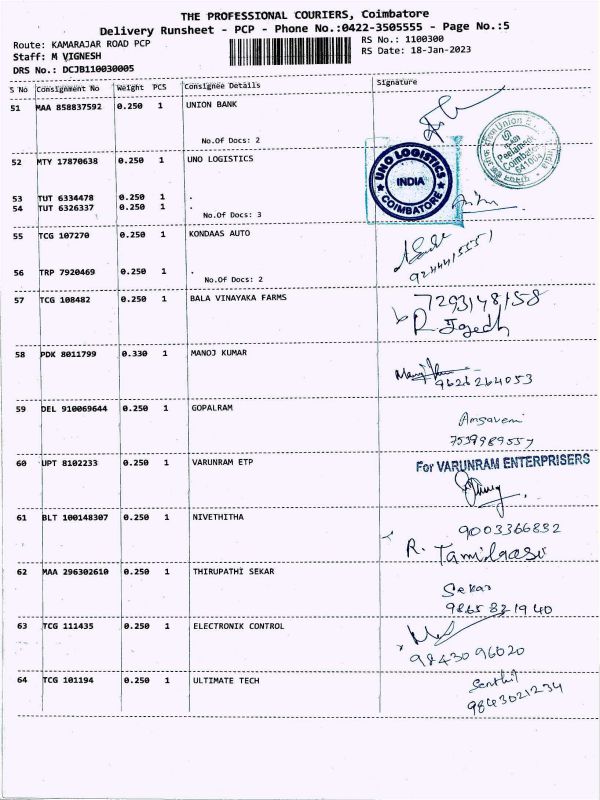 THE PROFESSIONAL COURIERS, Coimbatore
Delivery Runsheet - PCP - Phone No.:0422-3505555 - Page No.:5
Route: KAMARAJAR ROAD PCP
RS No.: 1100300
Staff: M VIGNESH
RS Date: 18-Jan-2023
DRS No.: DCJB110030005
S No Consignment No Weight PCS Consignee Details Signature
51 MAA 858837592 0.250 1 UNION BANK
No.Of Docs: 2
Union
Peelamedu
Coimbatore
641004
52 MTY 17870638 0.250 1 UNO LOGISTICS
UNO LOGISTICS
INDIA
COIMBATORE
53 TUT 6334478 0.250 1 .
54 TUT 6326337 0.250 1 .
No.Of Docs: 3
55 TCG 107270 0.250 1 KONDAAS AUTO
56 TRP 7920469 0.250 1 .
No.Of Docs: 2
57 TCG 108482 0.250 1 BALA VINAYAKA FARMS
7293148158
58 PDK 8011799 0.330 1 MANOJ KUMAR
9626264053
59 DEL 910069644 0.250 1 GOPALRAM
Angaveni
7539989557
60 UPT 8102233 0.250 1 VARUNRAM ETP
For VARUNRAM ENTERPRISERS
61 BLT 100148307 0.250 1 NIVETHITHA
9003366832
R. Tamilarasi
62 MAA 296302610 0.250 1 THIRUPATHI SEKAR
Sekar
9865821940
63 TCG 111435 0.250 1 ELECTRONIK CONTROL
9843096020
64 TCG 101194 0.250 1 ULTIMATE TECH
Senthil
9843021234